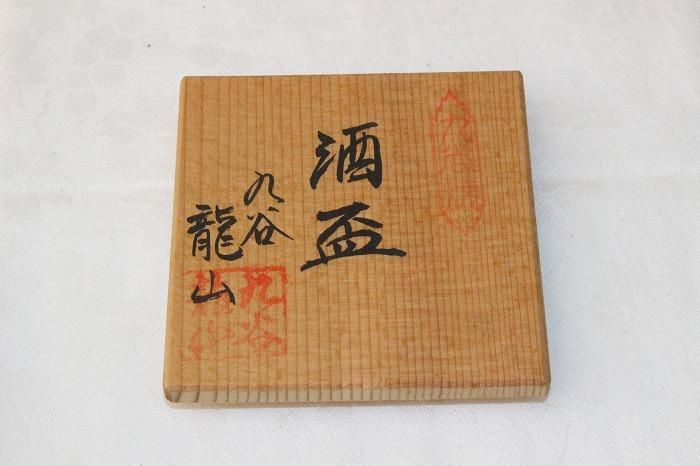 酒盃
九谷
龍山
九谷